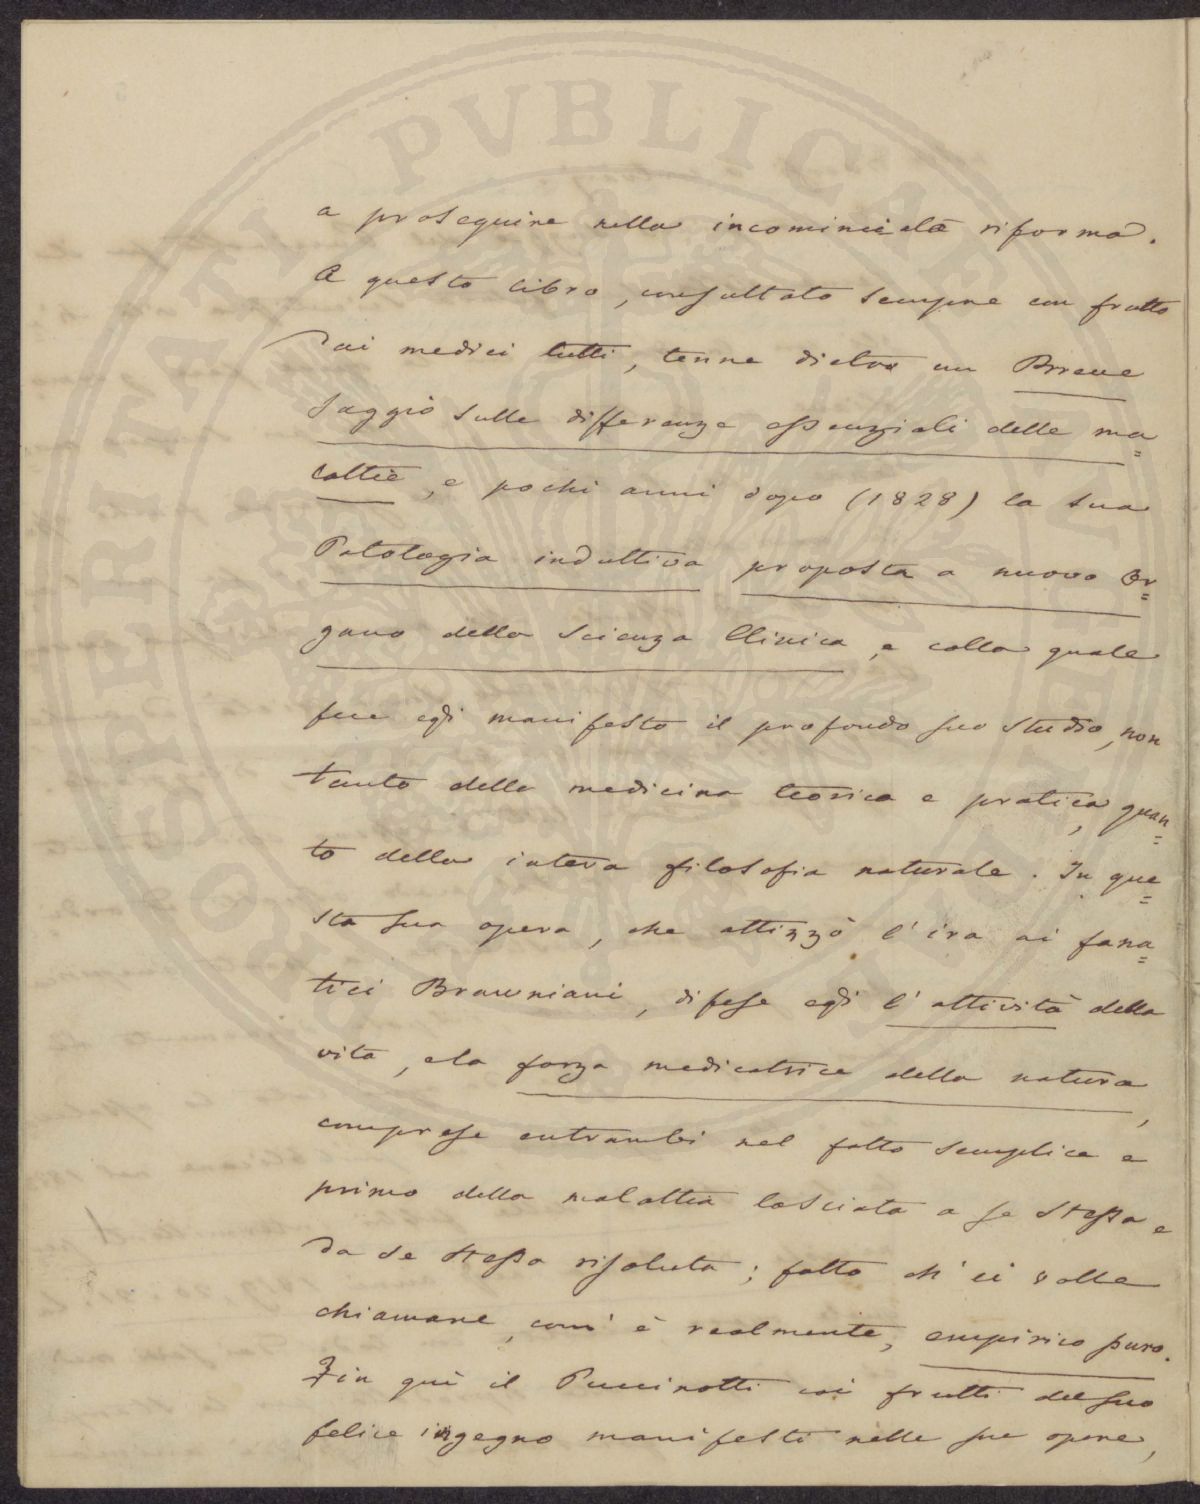 a proseguire nella incominciata riforma.
A questo libro, consultato sempre con frutto
dai medici tutti, tenne dietro un Breve
saggio sulle differenze essenziali delle ma=
lattie, e pochi anni dopo (1828) la sua
Patologia induttiva proposta a nuovo Or=
gano della Scienza Clinica, e colla quale
fece egli manifesto il profondo suo studio, non
tanto della medicina teorica e pratica, quan=
to della intera filosofia naturale. In que=
sta sua opera, che attizzò l'ira ai fana=
tici Browniani, difese egli l'attività della
vita, e la forza medicatrice della natura,
comprese entrambi nel fatto semplice e
primo della malattia lasciata a se stessa e
da se stessa risoluta; fatto ch'ei volle
chiamare, com'è realmente, empirico puro.
Fin quì il Puccinotti coi frutti del suo
felice ingegno manifesti nelle sue opere,
PROSPERITATI PVBLICAE AVGENDAE